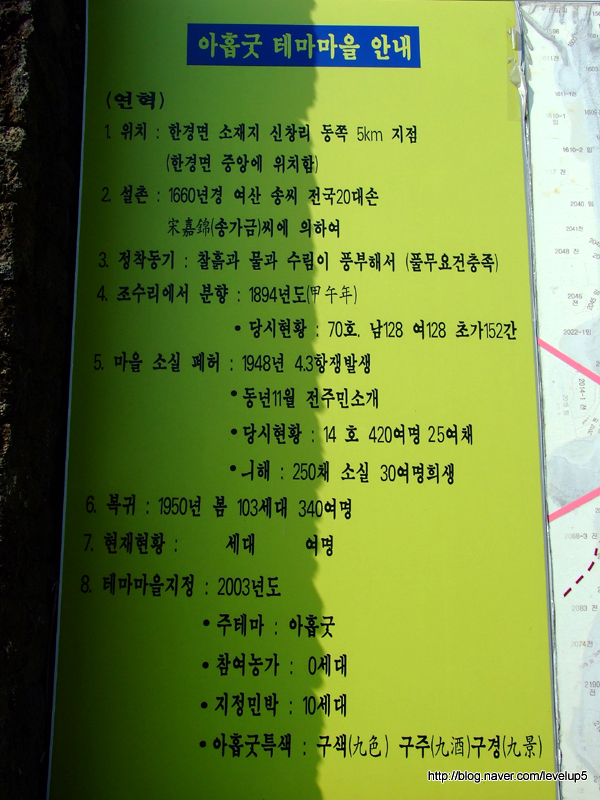 아홉굿 테마마을 안내
(연혁)
1. 위치 : 한경면 소재지 신창리 동쪽 5km 지점
(한경면 중앙에 위치함)
2. 설촌 : 1660년경 여산 송씨 전국20대손
宋嘉錦(송가금)씨에 의하여
3. 정착동기 : 찰흙과 물과 수림이 풍부해서 (풀무요건충족)
4. 조수리에서 분향 : 1894년도(甲午年)
• 당시현황 : 70호. 남128 여128 초가152간
5. 마을 소실 폐허 : 1948년 4.3항쟁발생
• 동년11월 전주민소개
• 당시현황 : 14 호 420여명 25여채
• 해 : 250채 소실 30여명희생
6. 복귀 : 1950년 봄 103세대 340여명
7. 현재현황 : 세대 여명
8. 테마마을지정 : 2003년도
• 주테마 : 아홉굿
• 참여농가 : 0세대
• 지정민박 : 10세대
• 아홉굿특색 : 구색(九色) 구주(九酒)구경(九景)
1610-2 임
2040 임
2041전
2048 전
2046 전
2022-1임
2014-1 전
2068-3 전
2083 전
2074전
http://blog.naver.com/levelup5